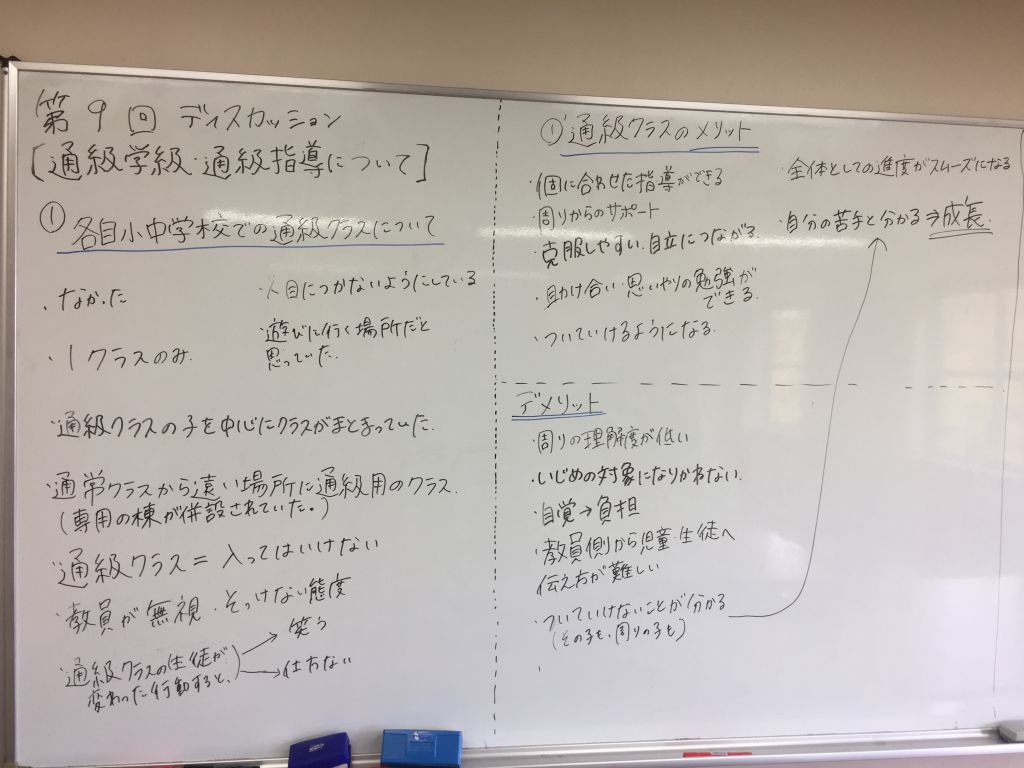 第9回 ディスカッション
[通級学級・通級指導について]
① 各自小中学校での通級クラスについて
・なかった
・1クラスのみ.
人目につかないようにしている
遊びに行く場所だと
思っていた.
・通級クラスの子を中心にクラスがまとまっていた.
・通常クラスから遠い場所に通級用のクラス.
(専用の棟が併設されていた。)
・通級クラス=入ってはいけない
・教員が無視・そっけない態度
・通級クラスの生徒が
変わった行動すると、
→笑う
→仕方ない
①'通級クラスのメリット
・個に合わせた指導ができる
・周りからのサポート
克服しやすい.自立につながる.
・助け合い・思いやりの勉強が
できる.
・ついていけるようになる.
・全体としての進度がスムーズになる
・自分の苦手と分かる⇒成長.
デメリット
・周りの理解度が低い
・いじめの対象になりかねない.
・自覚→負担
・教員側から児童・生徒へ
伝え方が難しい
・ついていけないことが分かる
(その子も、周りの子も)